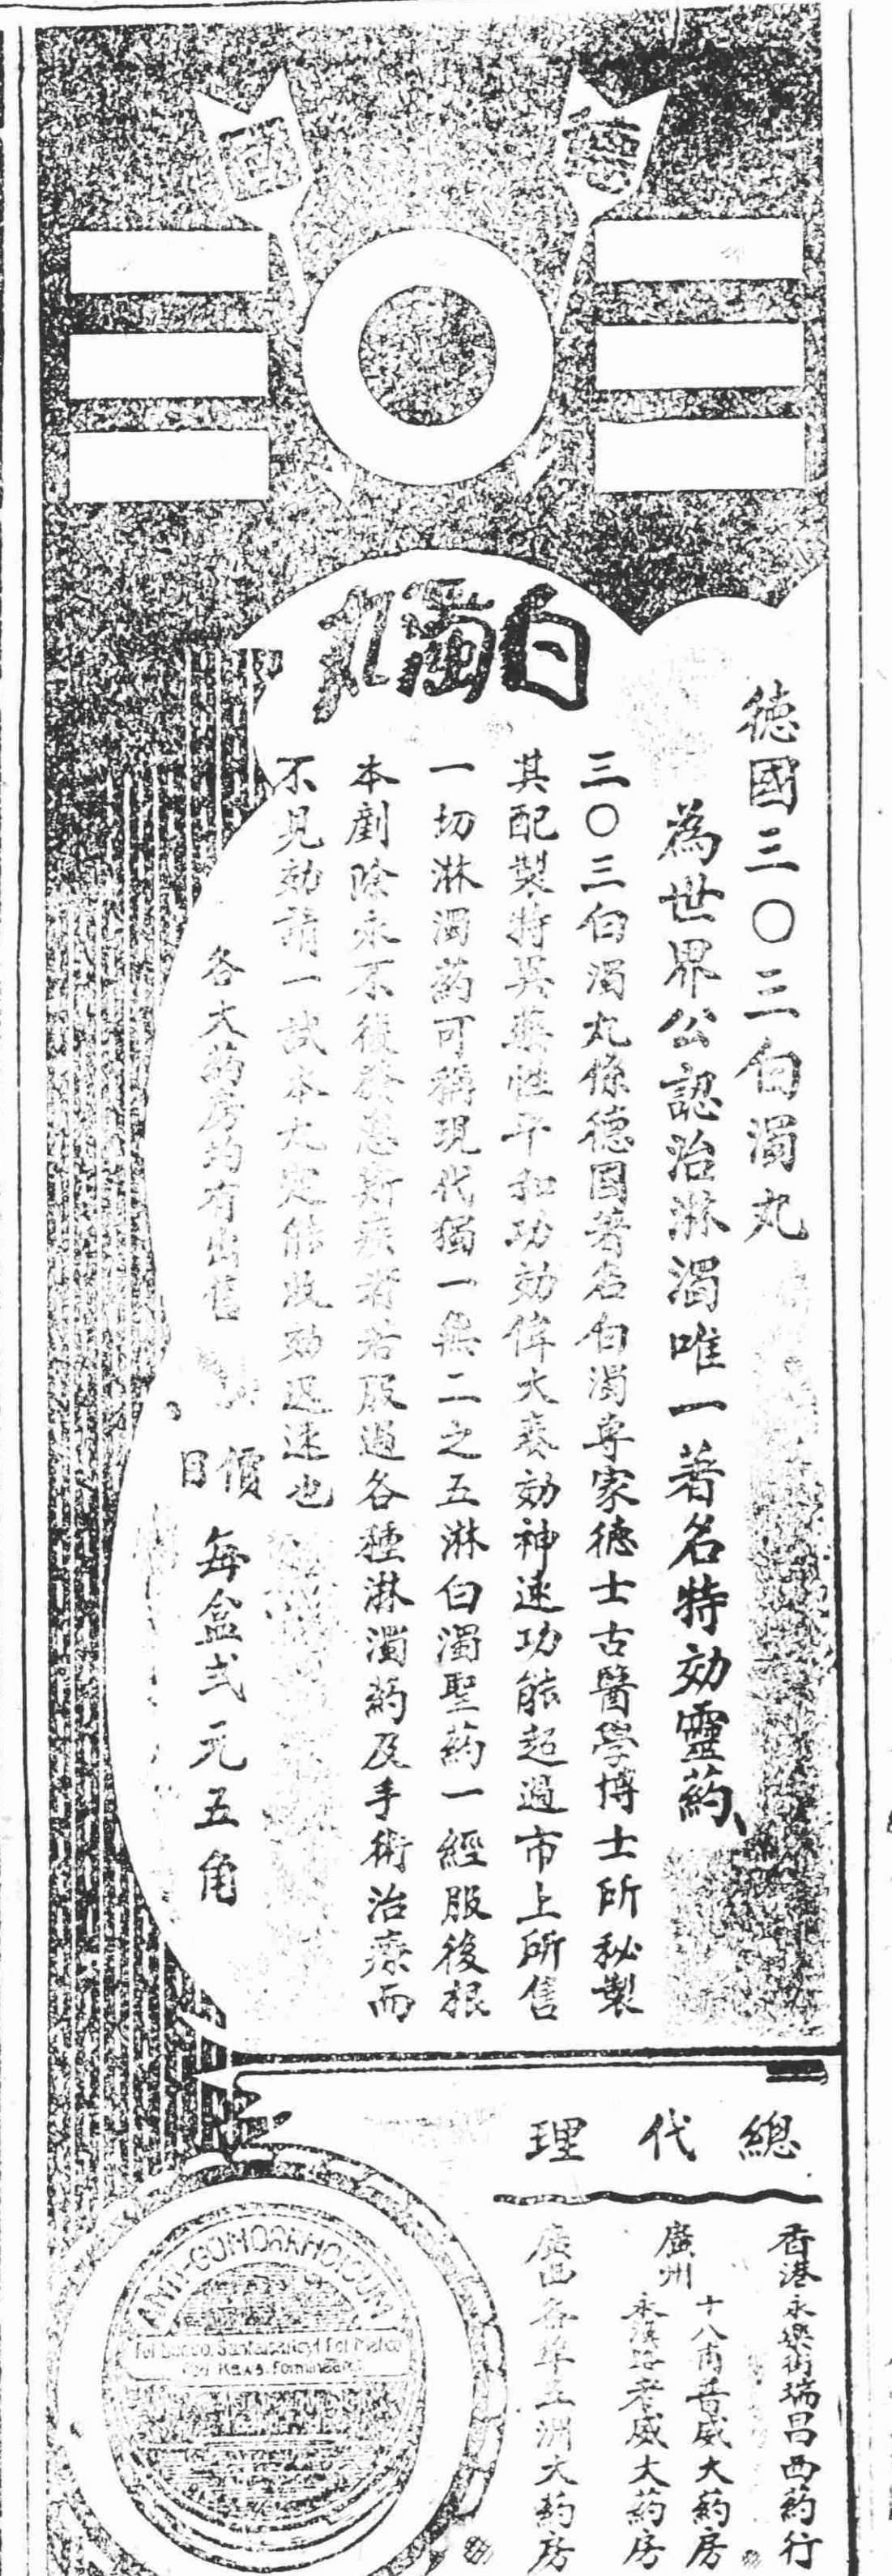 德國
三〇三
白濁丸
德國三〇三白濁丸
為世界公認治淋濁唯一著名特効靈药、
三〇三白濁丸係德国著名白濁專家德士古醫學博士所秘製
其配製特異藥性平和功効偉大奏効神速功能超過市上所售
一切淋濁药可稱現代獨一無二之五淋白濁聖药一經服後根
本剷除永不復發患斯疾者若服過各種淋濁药及手術治療而
不見効請一試本丸定能收効迅速也
各大药房均有出售
價目
每盒弍元五角
總代理
香港永樂街瑞昌西药行
廣州
十八甫普威大药房
永漢路老威大药房
廣西各埠五洲大药房
ANTI-GONORRHOICUM